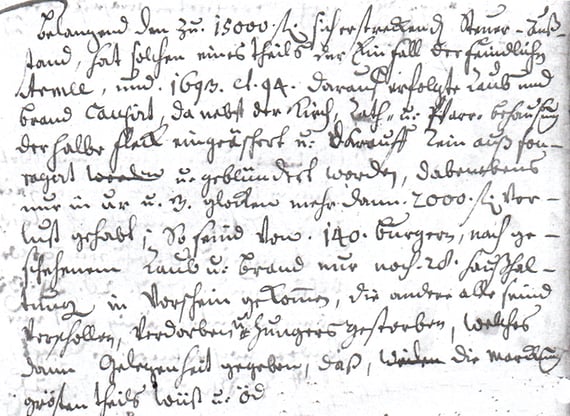 Belangend den zu. 15000. fl. sich erstreckend Steuer-Auß-
stand, hat solchen eines theils der Einfall der feindlichen
Armee, und. 1693. et. 94. darauf erfolgte Raub und
brand Causirt, da nebst der Kirch, Rath- u: Pfarr-behaußung
der halbe Fleck eingeäschert u: darauff Rein auß fou-
ragirt worden u: geblündert worden, dabenebens
nur in u. 3. glocken mehr dann. 2000. fl. Ver-
lust gehabt; So seind von. 140. burgern, nach ge-
schehenem Raub u: brand nur noch. 28. haußhal-
tung in Vorschein gekommen, die andere alle seind
Verschollen, Verdorben u: Hungers gestorben, welches
dann Gelegenheit gegeben, daß, die Marckung
grösten theils wüst u: öd